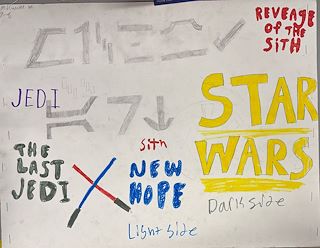 REVENGE
OF THE
SITH
JEDI
STAR
WARS
sith
THE
LAST
JEDI
NEW
HOPE
Dark side
Light side